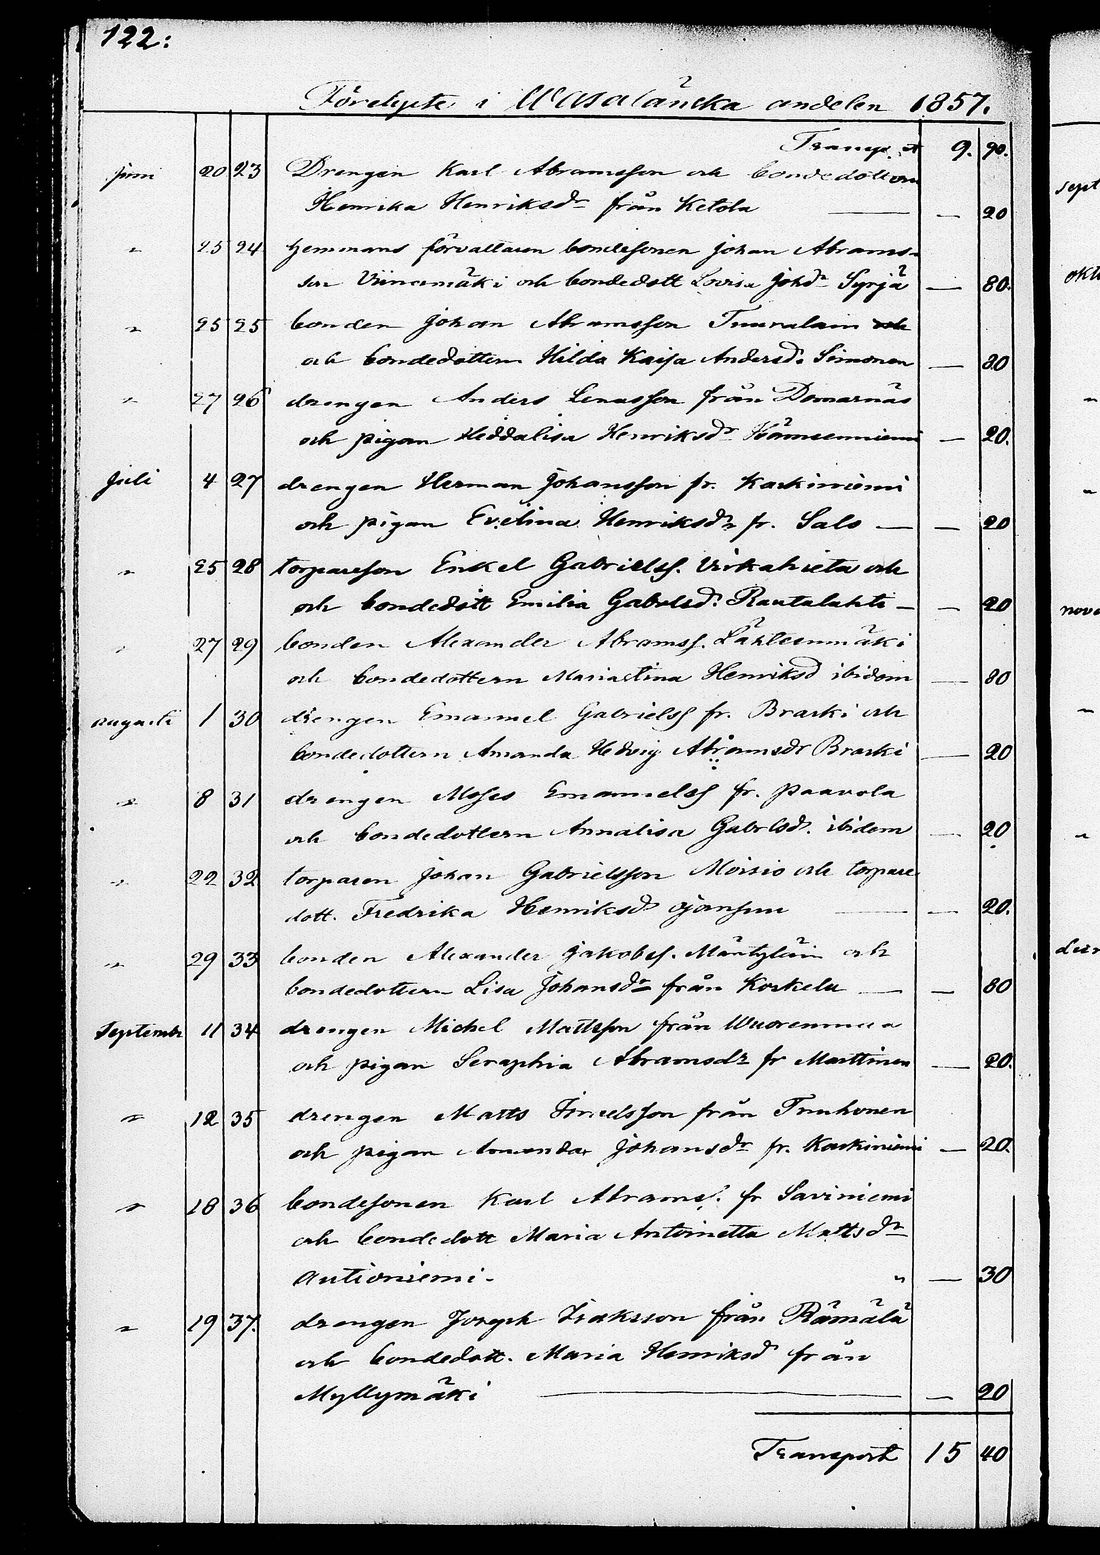 122:
Förelyste i Wasaländska andelen 1857.
Transpt 9. 90.
juni 20 23 Drengen Karl Abramsson och bondedottern
Henrika Henriksdr från Ketola — — 20
" 25 24 Hemmans förvaltaren bondesonen Johan Abrams-
son Viinamäki och bondedott Lovisa Johdr Syrjä — 80.
" 25 25 bonden Johan Abramsson Tuuralain och
och bondedottern Hilda Kaisa Andersdr Simonen — 80
" 27 26 drengen Anders Lenasson från Domarnäs
och pigan Heddalisa Henriksdr — 20.
Juli 4 27 drengen Herman Johansson fr. Kaskiniemi
och pigan Evelina Henriksdr fr. Salo — — 20
" 25 28 torpareson Enkel Gabrielss. Virkahieta och
och bondedott Emilia Gabrlsdr Rautalahti — — 20
" 27 29 bonden Alexander Abramss. Lähteenmäki
och bondedottern Mariastina Henriksd ibidem — 80
augusti 1 30 drengen Emanuel Gabrielss fr. Braski och
bondedottern Amanda Hedvig Abramsdr Braski — 20
" 8 31 drengen Moses Emanuelss fr. Paavola
och bondedottern Annalisa Gabrlsdr. ibidem — 20
" 22 32 torparen Johan Gabrielsson Moisio och torpare
dott. Fredrika Henriksdr Ojansuu — — 20.
" 29 33 bonden Alexander Jakobss. Mäntyläin och
bondedottern Lisa Johansdr från Koskela — — 80
Septembr 11 34 drengen Michel Mattsson från Wuorenmaa
och pigan Seraphia Abramsdr fr Marttinen — 20.
" 12 35 drengen Matts Israelsson från Tuuhonen
och pigan Amanda Johansdr fr. Kaskiniemi — 20.
" 18 36 bondesonen Karl Abrams. fr Saviniemi
och bondedott Maria Antoinetta Mattsdr
Autioniemi. " — 30
" 19 37. drengen Joseph Isaksson från Rämälä
och bondedott. Maria Henriksd från
Myllymäki — — 20
Transport 15 40
sept
okto
"
"
nove
"
"
dece